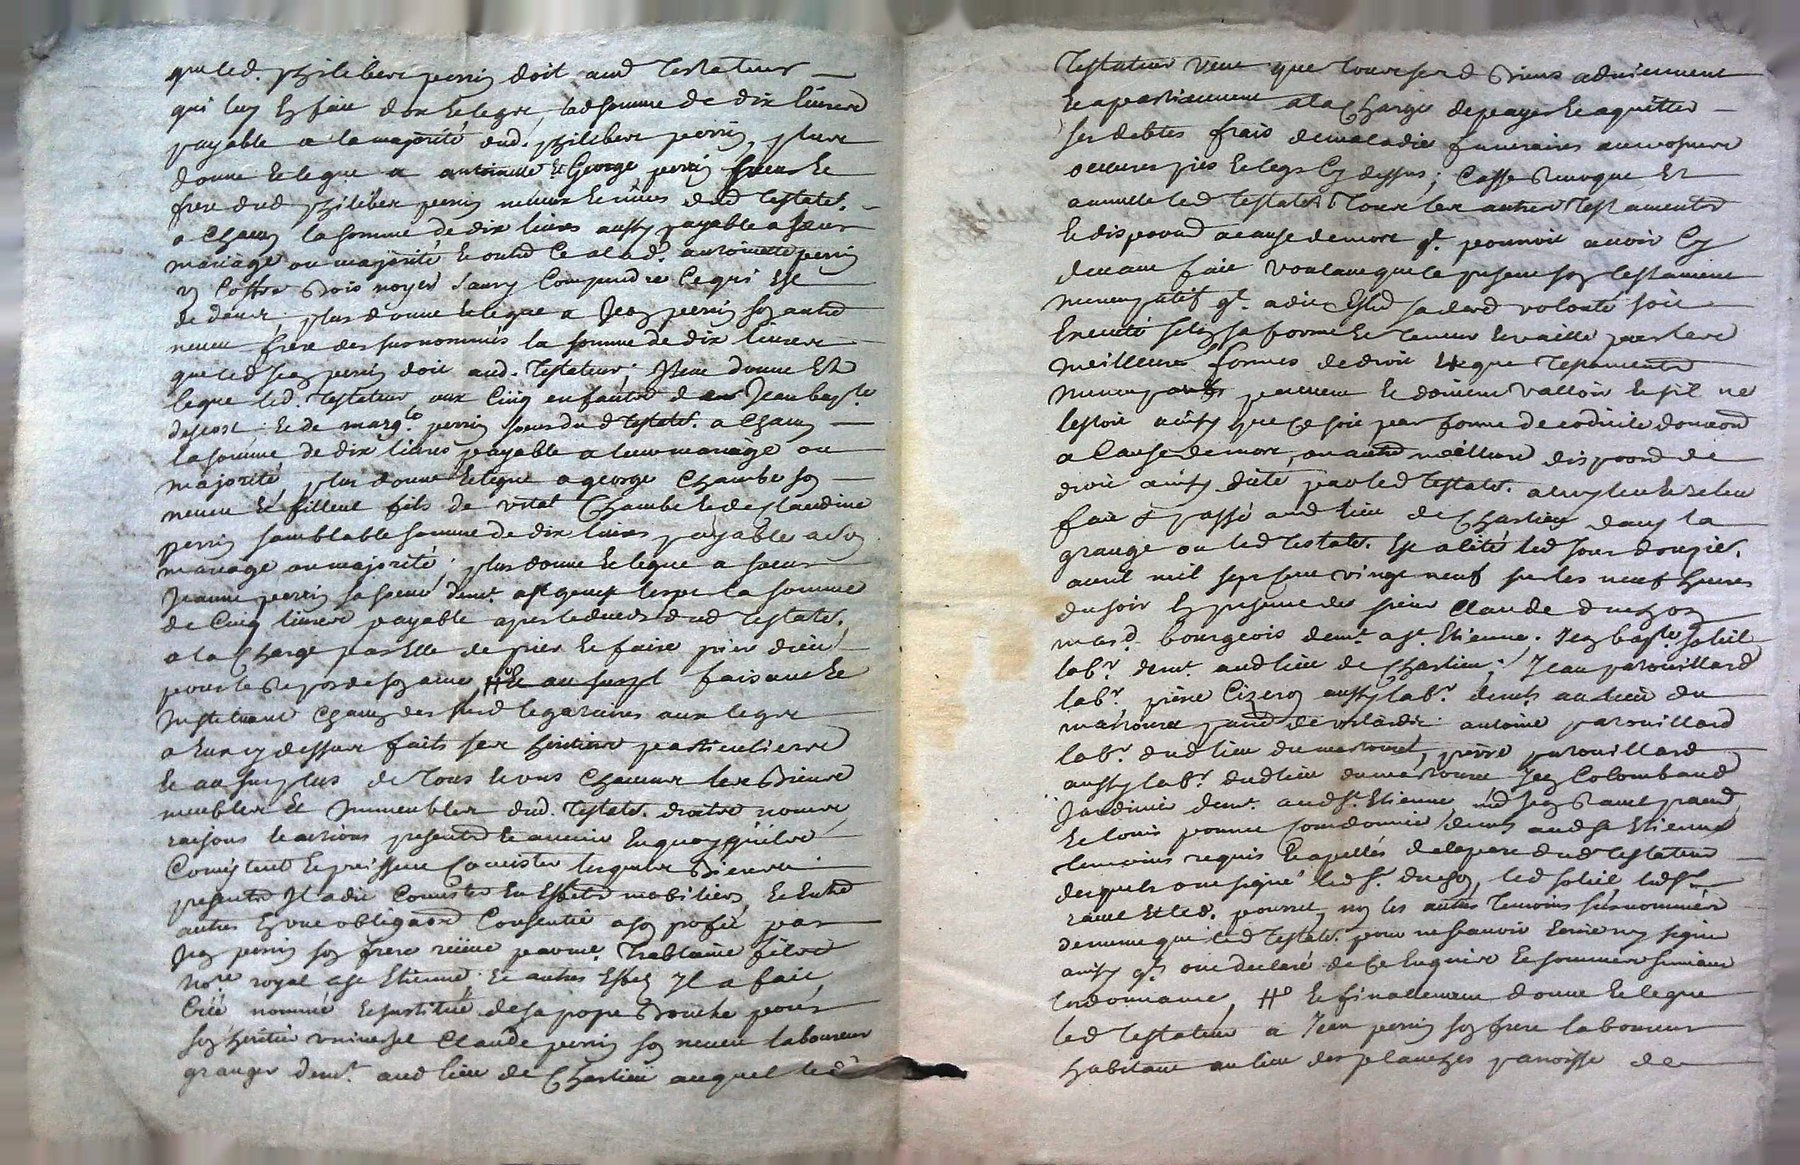 que led. philibert perrin doit aud testateur
qui luy en fait don et legue, lad somme de dix livres
payable a la majorité dud. philibert perrin, plus
donne et legue a antoinette et George perrin soeur et
frere dud philibert perrin neveux et nieces dud testatr.
a chacun la somme de dix livres aussy payable a leur
mariage ou majorité et outre ce a lad. antoinette perrin
un coffre bois noyer sans y comprendre ce qui est
dedans; plus donne et legue a Jean perrin son autre
neveu frere des susnommés la somme de dix livres
que led Jean perrin doit aud. testateur. Item donne et
legue led. testateur aux cinq enfants de Jean bapte
descost et de margte perrin soeur dud testatr. a chacun
la somme de dix livres payable a leur mariage ou
majorité, plus donne et legue a george Chambe son
neveu et filleul fils de vital Chambe et de Claudine
perrin semblable somme de dix livres payable a son
mariage ou majorité; plus donne et legue a soeur
Jeanne perrin sa soeur demt. a la somme
de cinq livres payable apres le deces dud testatr.
a la charge par elle de prier et faire prier dieu
pour le repos de son ame, # et au surpl faisant et
instituant chacun des susd legataires aux legs
a eux cy dessus faits ses heritiers particuliers
et au surplus de tous et uns chacuns ses biens
meubles et immeubles dud. testatr. droits noms
raisons et actions presents et avenir en quoy qu'ils
consistent et puissent consister lesquels biens
presents il a dit consister en effets mobiliers, et entre
autres en une obligaon consentie a son profit par
Jean perrin son frere reçue par me. Trablaine fils
nore royal a st Etienne; et autres effets il a fait
créé nommé et institué de sa propre bouche pour
son heritier universel Claude perrin son neveu laboureur
granger demt. aud lieu de Chastieu auquel led
testateur veut que tous sesd biens adviennent
et apartiennent a la charge de payer et aquitter
ses debtes frais de maladie funeraires
oeuvres pies et legs cy dessus; casse revoque et
annulle led testatr tous les autres testaments
et disposons a cause de mort qt. pourroit avoir cy
devant fait voulant que le present son testament
nuncupatif qt. a dit estre sa derd volonté soit
executé selon sa forme et teneur et vaille par les
meilleures formes de droit et que testaments
nuncupatifs peuvent et doivent valloir et s'il ne
l'estoit ainsy que ce soit par forme de codicile donaon
a cause de mort, ou autre meilleure disposon de
droit ainsy dité par led testatr. a luy leu et releu
fait & passé aud lieu de Chastieu dans la
grange ou led testatr. est alité led jour douzie.
avril mil sept cent vingt neuf sur les neuf heures
du soir en presence de sieur Claude duchon
mard. bourgeois demt a st. Etienne. Jean bapte soleil
labr. demt. aud lieu de Chastieu; Jean patouillard
labr. pierre Cizeron aussy labr. demts au lieu du
mattouret paroisse de valardi antoine patouillard
labr. dud lieu du mattouret, pierre patouillard
aussy labr dud lieu du mattouret Jean Colombaud
Jardinier demt. aud st. Etienne
et louis pourret cordonnier demts aud st Etienne
temoins requis et apellés de la part dud testateur
desquels ont signé led sr. duchon, led soleil, led sr.
ravel et led. pourret, non les autres temoins susnommés
de meme que led testatr. pour ne scavoir ecrire ny signer
ainsy qls ont declaré de ce enquis et sommés suivant
l'ordonnance, # et finallement donne et legue
led testateur a Jean perrin son frere laboureur
habitant au lieu des planches paroisse de